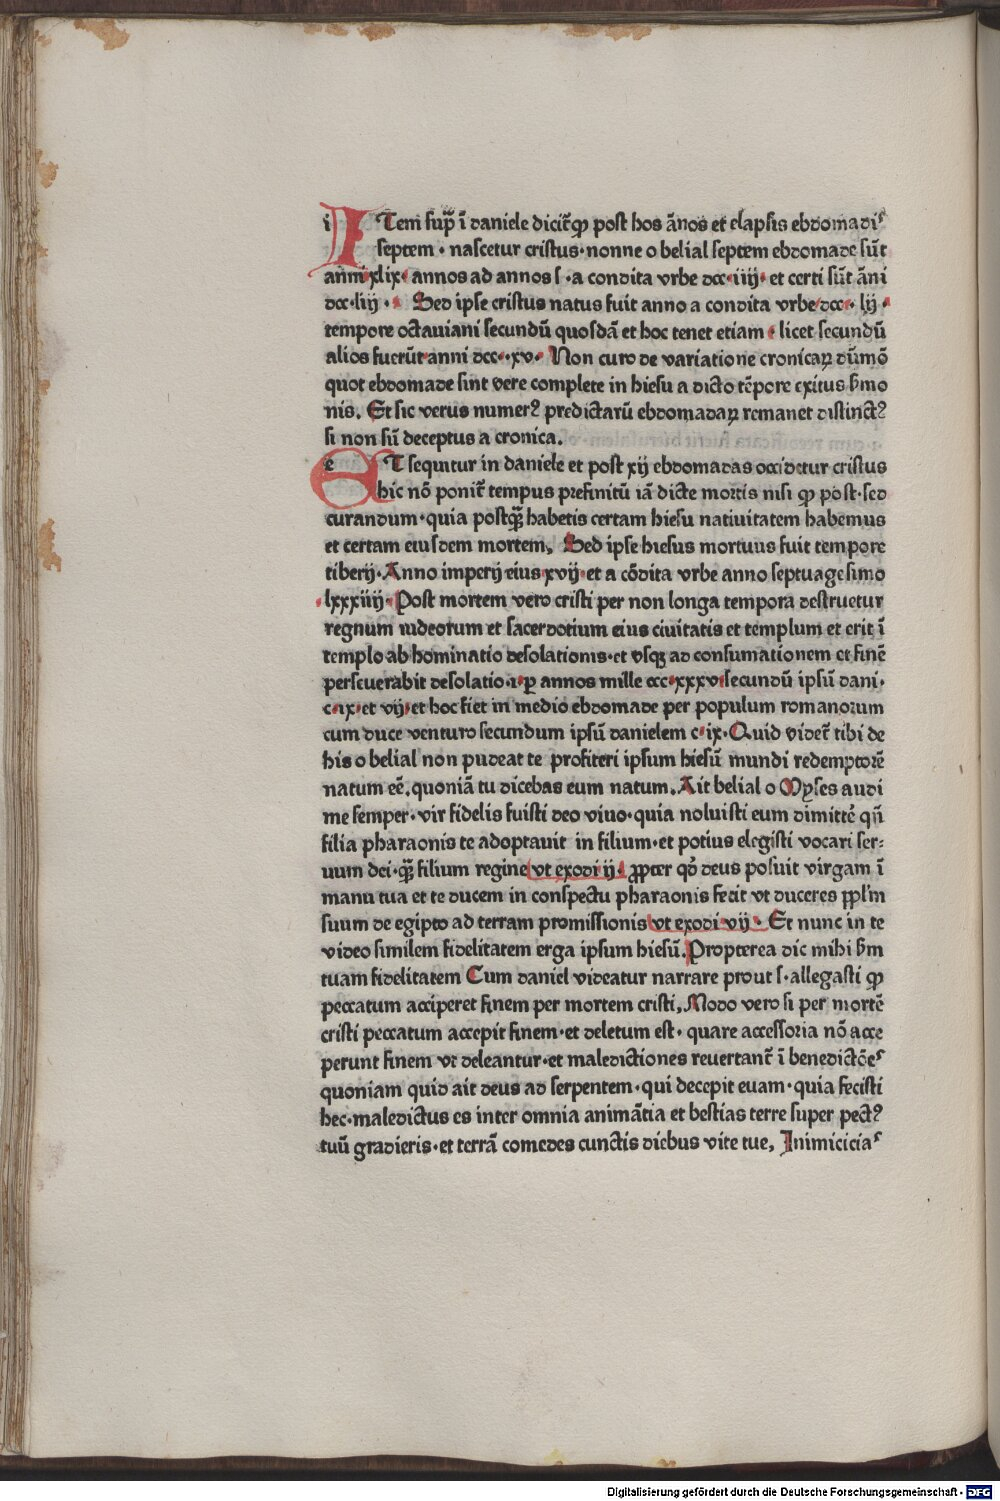 iITem supͣ ī daniele dicit᷑ ꝙ post hos ānos et elapsis ebdomadiˢ
septem · nascetur cristus · nonne o belial septem ebdomade sūt
anni xlix · annos ad annos s · a condita vrbe dcc · iiij · et certi sūt āni
dcc · liij · Sed ipse cristus natus fuit anno a condita vrbe dcc · lij ·
tempore octauiani secundū quosdā et hoc tenet etiam · licet secundū
alios fuerūt anni dcc · xv · Non curo de variatione cronicaꝝ dūmō
quot ebdomade sint vere complete in hiesu a dicto tēpore exitus ẜmo
nis. Et sic verus numerꝰ predictarū ebdomadaꝝ remanet distinctꝰ
si non sū deceptus a cronica.
eET sequitur in daniele et post xij ebdomadas occidetur cristus
hic nō ponit᷑ tempus prefinitū iā dicte mortis nisi ꝙ post · sed
curandum · quia postꝙ̄ habetis certam hiesu natiuitatem habemus
et certam eiusdem mortem, Sed ipse hiesus mortuus fuit tempore
tiberij · Anno imperij eius xvij · et a cōdita vrbe anno septuagesimo
lxxxiiij · Post mortem vero cristi per non longa tempora destruetur
regnum iudeorum et sacerdotium eius ciuitatis et templum et erit ī
templo ab hominatio desolationis · et vsqꝫ ad consumationem et finē
perseuerabit desolatio · i · ꝑ annos mille ccc · xxxv secundū ipsū dani ·
c · ix · et vij · et hoc fiet in medio ebdomade per populum romanorum
cum duce venturo secundum ipsū danielem c · ix · Quid videt᷑ tibi de
his o belial non pudeat te profiteri ipsum hiesū mundi redemptorē
natum eē. quoniā tu dicebas eum natum. Ait belial o Moyses audi
me semper · vir fidelis fuisti deo viuo · quia noluisti eum dimittē qn̄
filia pharaonis te adoptauit in filium · et potius elegisti vocari ser⸗
uum dei · ꝙ̄ filium regine vt exodi ij · ꝓpter qd̄ deus posuit virgam ī
manu tua et te ducem in conspectu pharaonis fecit vt duceres ppl'm
suum de egipto ad terram promissionis vt exodi vij · Et nunc in te
video similem fidelitatem erga ipsum hiesū. Propterea dic mihi ẜm
tuam fidelitatem Cum daniel videatur narrare prout s · allegasti ꝙ
peccatum acciperet finem per mortem cristi, Modo vero si per mortē
cristi peccatum accepit finem · et deletum est · quare accessoria nō acce
perunt finem vt deleantur · et maledictiones reuertant᷑ ī benedictōeˢ
quoniam quid ait deus ad serpentem · qui decepit euam · quia fecisti
hec · maledictus es inter omnia animātia et bestias terre super pectꝰ
tuū gradieris · et terrā comedes cunctis diebus vite tue, Inimiciciaˢ
Digitalisierung gefördert durch die Deutsche Forschungsgemeinschaft · DFG